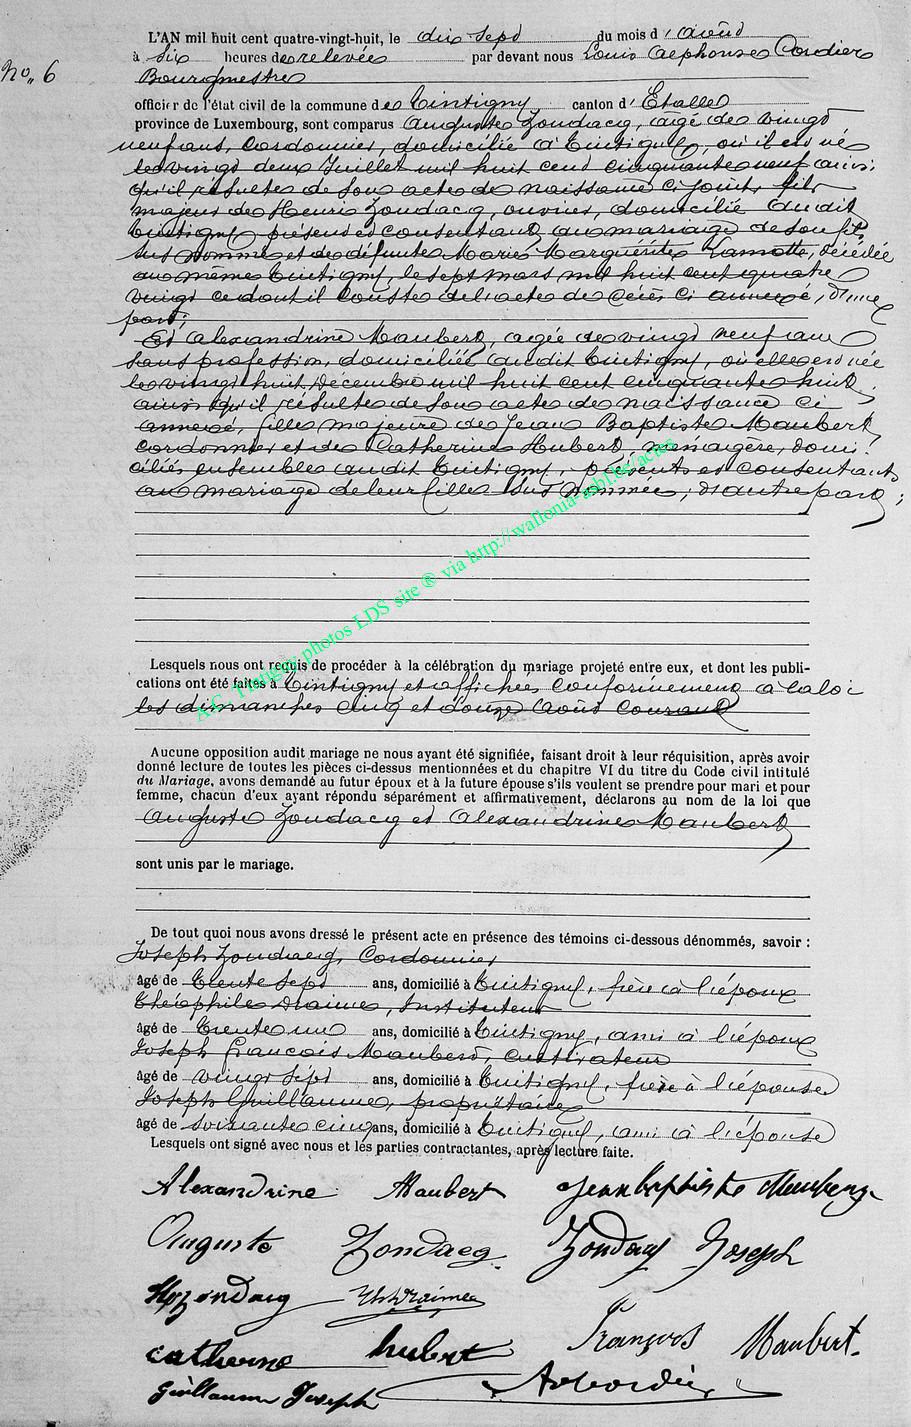 No. 6
L'AN mil huit cent quatre-vingt-huit, le dix sept du mois d'Août
à Six heures de relevée par devant nous Louis Alphonse Cordier
Bourgmestre
officier de l'état civil de la commune de Tintigny canton d'Etalle
province de Luxembourg, sont comparus Auguste Zondacq, agé de vingt
neuf ans, Cordonnier, domicilié à Tintigny, où il est né
le vingt deux Juillet mil huit cent cinquante neuf ainsi
qu'il résulte de son acte de naissance ci joint, fils
majeur de Henri Zondacq, ouvrier, domicilié audit
Tintigny présent et consentant au mariage de son fils
sus nommé et de défunte Marie Marguérite Lamotte, décédée
au même Tintigny, le sept mars mil huit cent quatre
vingt ce dont il conste de l'acte de décès ci annexé, d'une
part;
Et Alexandrine Maubert, agée de vingt neuf ans
sans profession, domiciliée audit Tintigny, où elle est née
le vingt huit Décembre mil huit cent cinquante huit,
ainsi qu'il résulte de son acte de naissance ci
annexé, fille majeure de Jean Baptiste Maubert,
cordonnier et de Catherine Hubert, ménagère, domi-
ciliés ensemble audit Tintigny, présents et consentants
au mariage de leur fille sus nommée, d'autre part;
A.C. Tintigny photos LDS site ® via http://wallonia-asbl.be/actes
Lesquels nous ont requis de procéder à la célébration du mariage projeté entre eux, et dont les publi-
cations ont été faites à Tintigny et affichées conformément à la loi
les dimanches cinq et douze Août courant
Aucune opposition audit mariage ne nous ayant été signifiée, faisant droit à leur réquisition, après avoir
donné lecture de toutes les pièces ci-dessus mentionnées et du chapitre VI du titre du Code civil intitulé
du Mariage, avons demandé au futur époux et à la future épouse s'ils veulent se prendre pour mari et pour
femme, chacun d'eux ayant répondu séparément et affirmativement, déclarons au nom de la loi que
Auguste Zondacq et Alexandrine Maubert
sont unis par le mariage.
De tout quoi nous avons dressé le présent acte en présence des témoins ci-dessous dénommés, savoir :
Joseph Zondacq, Cordonnier
âgé de trente sept ans, domicilié à Tintigny, frère à l'époux
Théophile Draime, Instituteur
âgé de trente un ans, domicilié à Tintigny, ami à l'époux
Joseph François Maubert, cultivateur
âgé de vingt sept ans, domicilié à Tintigny, frère à l'épouse
Joseph Guillaume, propriétaire
âgé de soixante cinq ans, domicilié à Tintigny, ami à l'épouse
Lesquels ont signé avec nous et les parties contractantes, après lecture faite.
Alexandrine Maubert Jean baptiste
Auguste Zondacq Zondacq Joseph
Hy Zondacq Th Draime
catherine hubert François Maubert.
Guillaume Joseph A Cordier